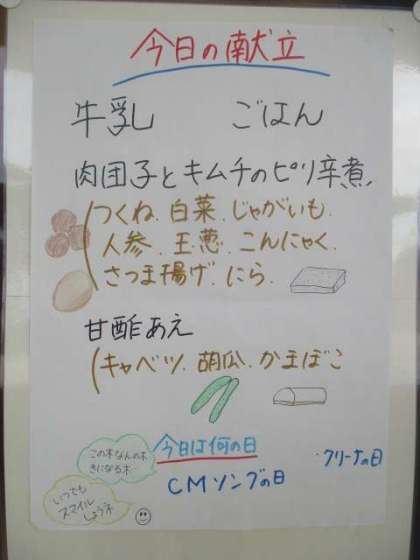 今日の献立
牛乳　ごはん
肉団子とキムチのピリ辛煮
つくね、白菜、じゃがいも、
人参、玉葱、こんにゃく、
さつま揚げ、にら、
甘酢あえ
キャベツ、胡瓜、かまぼこ
この木なんの木
きになる木
今日は何の日
CMソングの日
クリーナの日
いつでも
スマイル
しようネ